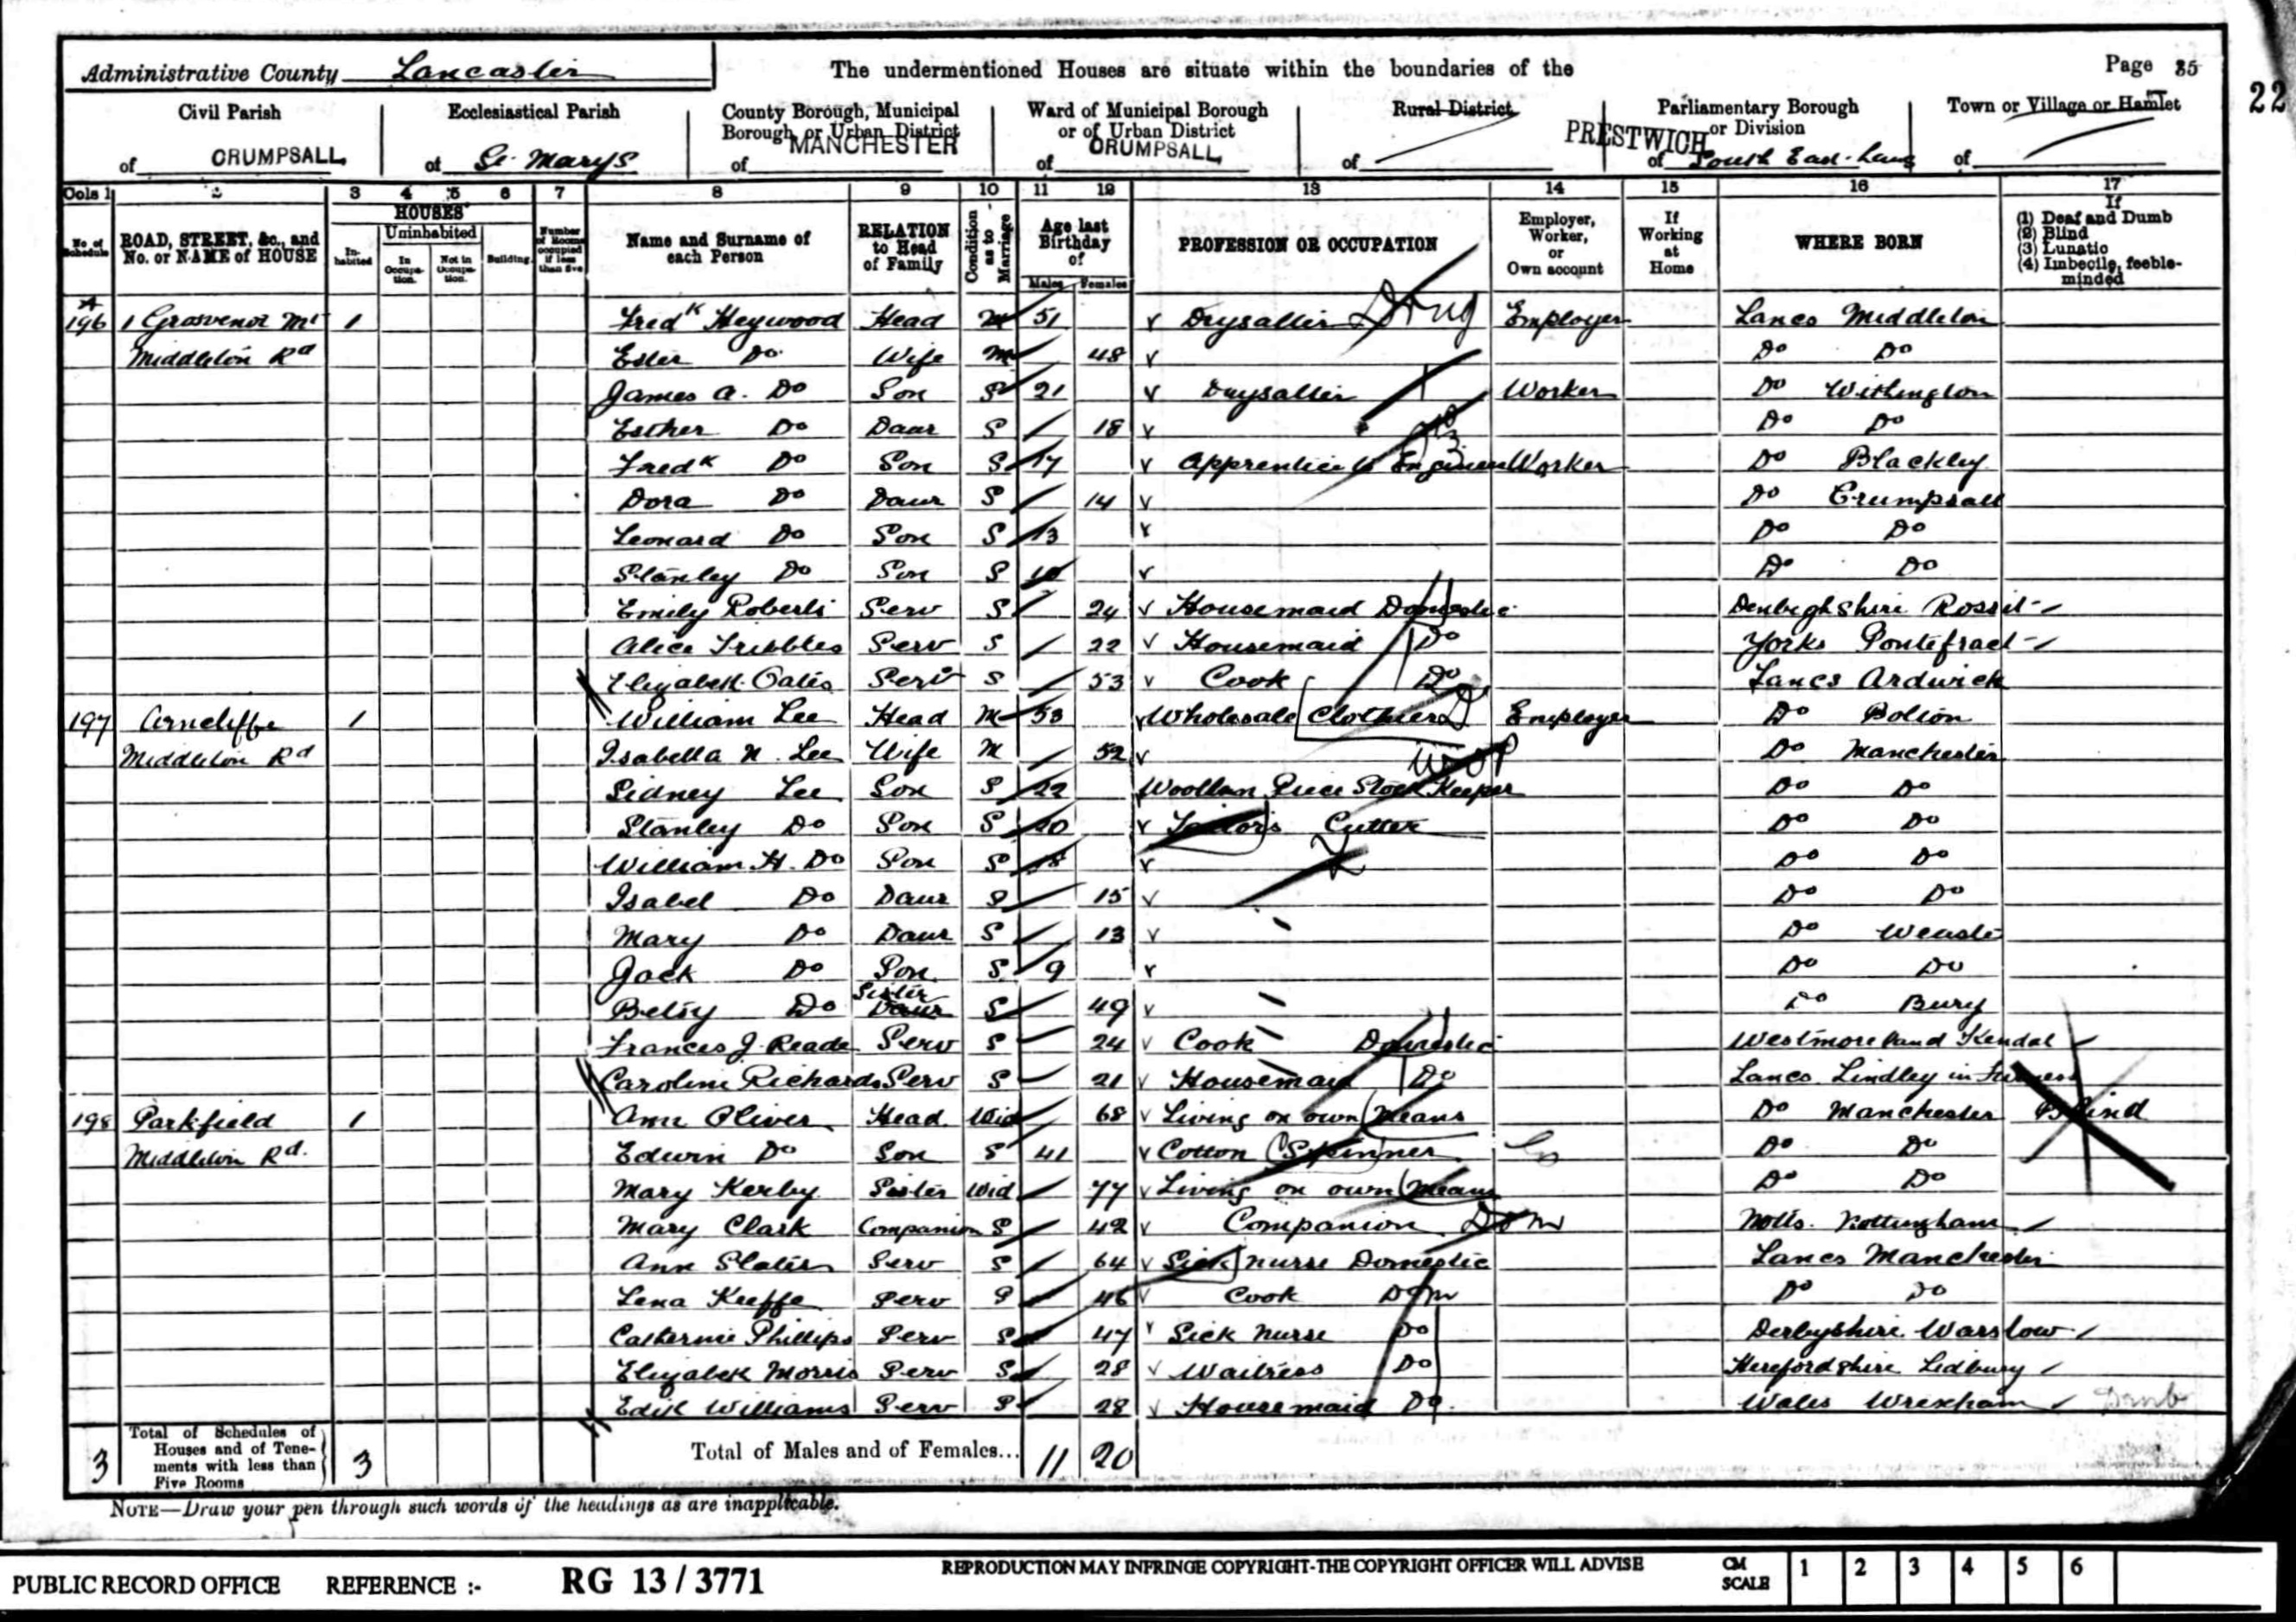 Administrative County Lancaster
The undermentioned Houses are situate within the boundaries of the
Page 35
22
Civil Parish of CRUMPSALL
Ecclesiastical Parish of St. Marys
County Borough, Municipal Borough or Urban District of MANCHESTER
Ward of Municipal Borough or of Urban District of CRUMPSALL
Rural District of
Parliamentary Borough or Division of PRESTWICH South East Lancs
Town or Village or Hamlet of
Cols 1 2 3 4 5 6 7 8 9 10 11 12 13 14 15 16 17
No. of Schedule
ROAD, STREET, &c., and No. or NAME of HOUSE
HOUSES
Inhabited
Uninhabited
In Occupation.
Not in Occupation.
Building.
Number of Rooms occupied if less than five
Name and Surname of each Person
RELATION to Head of Family
Condition as to Marriage
Age last Birthday of
Males Females
PROFESSION OR OCCUPATION
Employer, Worker, or Own account
If Working at Home
WHERE BORN
If (1) Deaf and Dumb (2) Blind (3) Lunatic (4) Imbecile, feeble-minded
196 1 Grosvenor Mt 1 Fredk Heywood Head M 51 Drysalter Drug Employer Lancs Middleton
Middleton Rd Ester Do Wife M 48 Do Do
James A. Do Son S 21 Drysalter Worker Do Withington
Esther Do Daur S 18 Do Do
Fredk Do Son S 17 Apprentice to Engineer Worker Do Blackley
Dora Do Daur S 14 Do Crumpsall
Leonard Do Son S 13 Do Do
Stanley Do Son S 10 Do Do
Emily Roberts Serv S 24 Housemaid Domestic Denbighshire Rossit
Alice Tribbles Serv S 22 Housemaid Do Yorks Pontefract
Elizabeth Oates Serv S 53 Cook Do Lancs Ardwick
197 Arncliffe 1 William Lee Head M 53 Wholesale Clothier D Employer Do Bolton
Middleton Rd Isabella N. Lee Wife M 52 Do Manchester
Sidney Lee Son S 22 Woollen Piece Stock Keeper Do Do
Stanley Do Son S 20 Tailor's Cutter Do Do
William H. Do Son S 18 Do Do
Isabel Do Daur S 15 Do Do
Mary Do Daur S 13 Do Weaste
Jack Do Son S 9 Do Do
Betsy Do Daur Sister S 49 Do Bury
Frances J. Reade Serv S 24 Cook Domestic Westmoreland Kendal
Caroline Richards Serv S 21 Housemaid Do Lancs Lindley in Furness
198 Parkfield 1 Ann Oliver Head Wid 68 Living on own Means Do Manchester Blind
Middleton Rd. Edwin Do Son S 41 Cotton Spinner Do Do
Mary Kerby Sister Wid 77 Living on own Means Do Do
Mary Clark Companion S 42 Companion Dom Notts. Nottingham
Ann Slater Serv S 64 Sick nurse Domestic Lancs Manchester
Lena Keeffe Serv S 46 Cook Dom Do Do
Catherine Phillips Serv S 47 Sick Nurse Do Derbyshire Warslow
Elizabeth Morris Serv S 28 Waitress Do Herefordshire Ledbury
Edith Williams Serv S 28 Housemaid Do. Wales Wrexham Denb
3 Total of Schedules of Houses and of Tenements with less than Five Rooms 3 Total of Males and of Females... 11 20
NOTE—Draw your pen through such words of the headings as are inapplicable.
PUBLIC RECORD OFFICE REFERENCE :- RG 13 / 3771 REPRODUCTION MAY INFRINGE COPYRIGHT-THE COPYRIGHT OFFICER WILL ADVISE CM SCALE 1 2 3 4 5 6